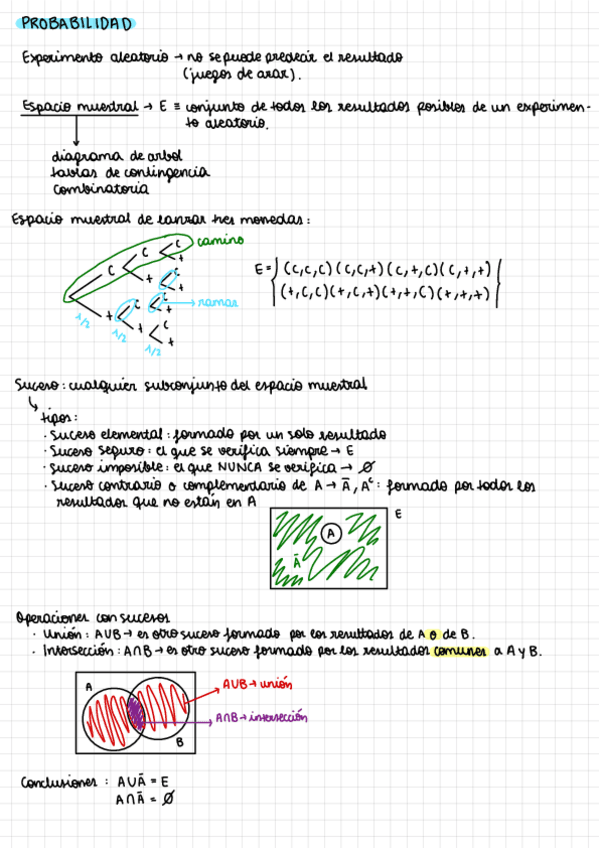 PROBABILIDAD
Experimento aleatorio → no se puede predecir el resultado
(juegos de azar).
Espacio muestral → E ≡ conjunto de todos los resultados posibles de un experimen-
to aleatorio.
diagrama de arbol
tablas de contingencia
combinatoria
Espacio muestral de lanzar tres monedas:
C camino
C
C +
+ C
+
+ C C ramas
+
+ C
+
1/2 1/2 1/2
E = { (C,C,C) (C,C,+) (C,+,C) (C,+,+)
(+,C,C) (+,C,+) (+,+,C) (+,+,+) }
Suceso: cualquier subconjunto del espacio muestral
tipos:
· Suceso elemental: formado por un solo resultado
· Suceso seguro: el que se verifica siempre → E
· Suceso imposible: el que NUNCA se verifica → Ø
· Suceso contrario o complementario de A → Ā, Aᶜ: formado por todos los
resultados que no están en A
E
A
Ā
Operaciones con sucesos
· Unión: AUB → es otro suceso formado por los resultados de A o de B.
· Intersección: A∩B → es otro suceso formado por los resultados comunes a A y B.
A
AUB → unión
A∩B → intersección
B
Conclusiones: AUĀ = E
A∩Ā = Ø